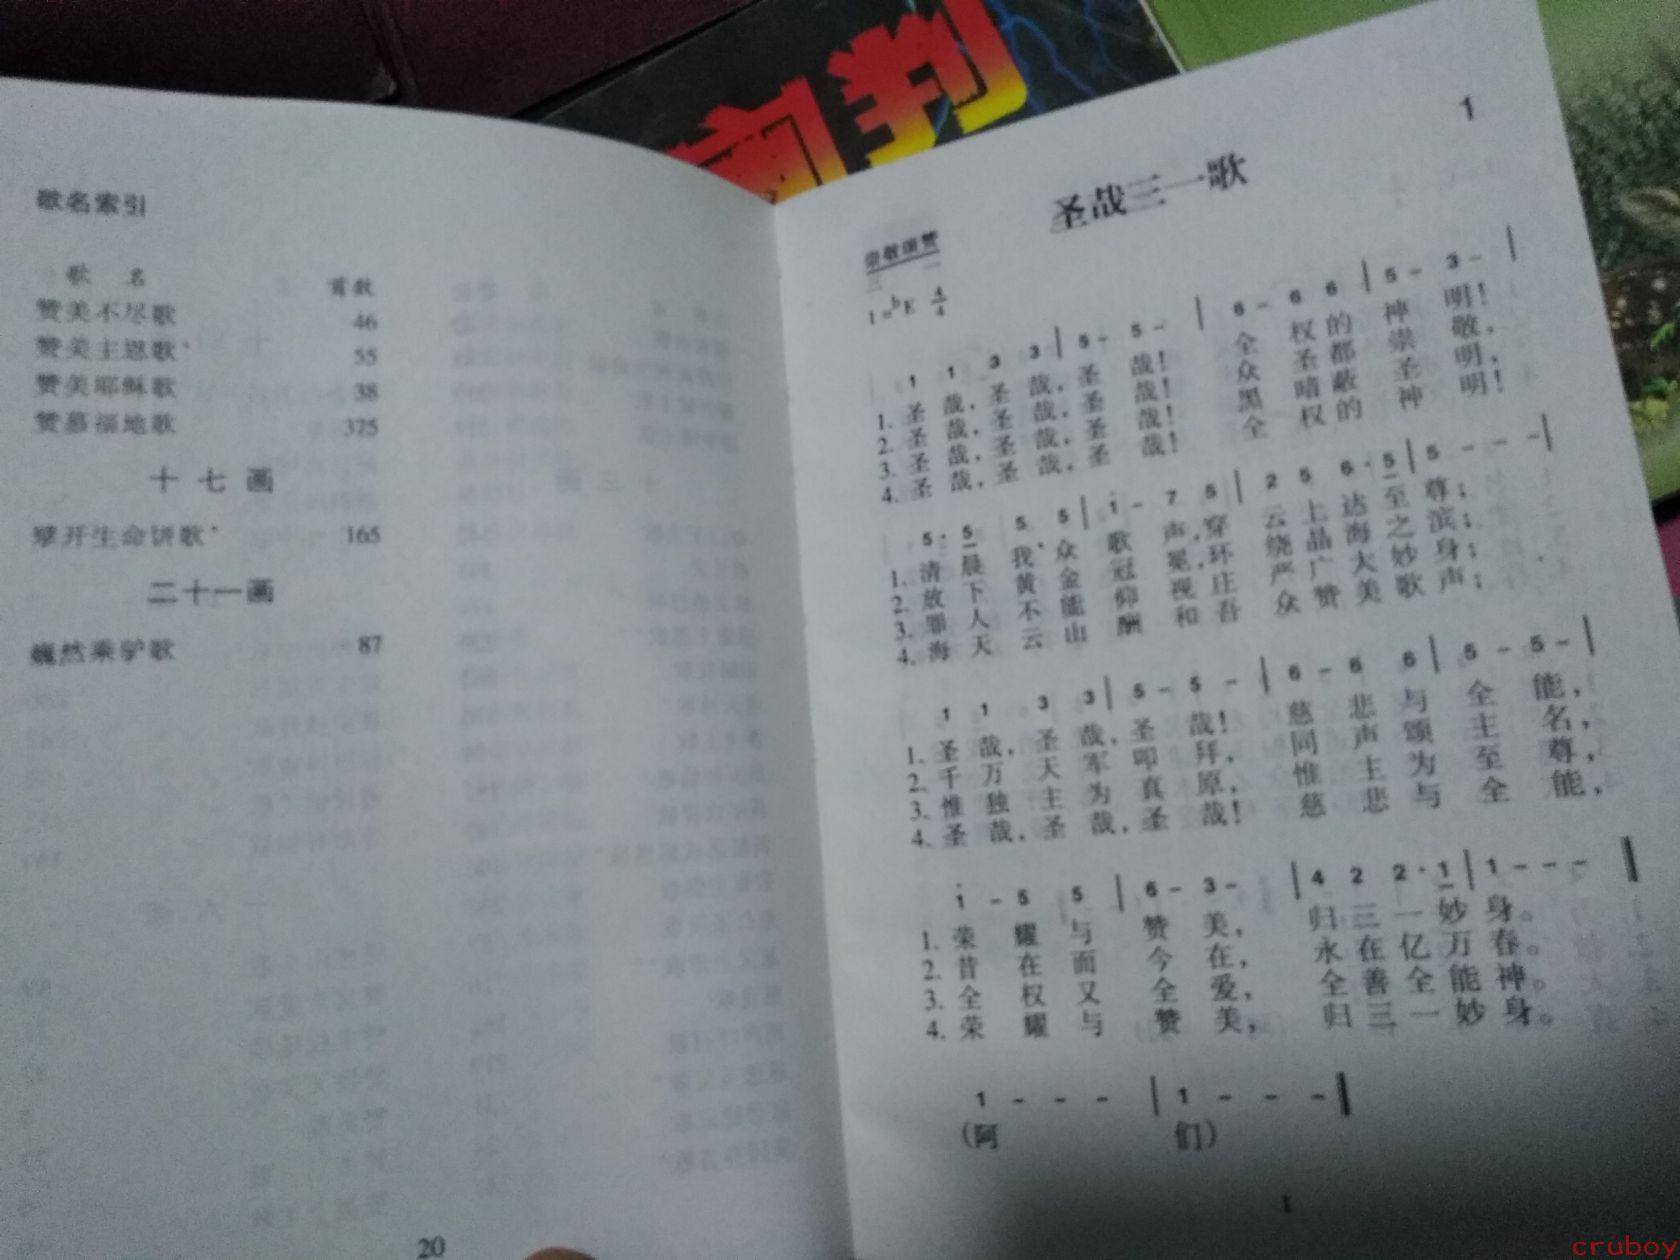 判
歌名索引
歌 名 首数
赞美不尽歌 46
赞美主恩歌* 55
赞美耶稣歌 38
赞慕福地歌 375
十七画
擘开生命饼歌* 165
二十一画
巍然乘驴歌 87
20
1
圣哉三一歌
崇敬颂赞
1=bE 4/4
1 1 3 3 | 5 - 5 - | 6 - 6 6 | 5 - 3 - |
1. 圣哉,圣哉,圣哉! 全权的神明!
2. 圣哉,圣哉,圣哉! 众圣都崇敬,
3. 圣哉,圣哉,圣哉! 黑暗蔽圣明,
4. 圣哉,圣哉,圣哉! 全权的神明!
5· 5 5 5 | i - 7 5 | 2 5 6· 5 | 5 - - - |
1. 清晨我众歌声,穿云上达至尊;
2. 放下黄金冠冕,环绕晶海之滨;
3. 罪人不能仰视庄严广大妙身;
4. 海天云山酬和吾众赞美歌声;
1 1 3 3 | 5 - 5 - | 6 - 6 6 | 5 - 5 - |
1. 圣哉,圣哉,圣哉! 慈悲与全能,
2. 千万天军叩拜, 同声颂主名,
3. 惟独主为真原, 惟主为至尊,
4. 圣哉,圣哉,圣哉! 慈悲与全能,
i - 5 5 | 6 - 3 - | 4 2 2· 1 | 1 - - - ‖
1. 荣耀与赞美, 归三一妙身。
2. 昔在而今在, 永在亿万春。
3. 全权又全爱, 全善全能神。
4. 荣耀与赞美, 归三一妙身。
1 - - - | 1 - - - ‖
(阿 们)
1
cruboy